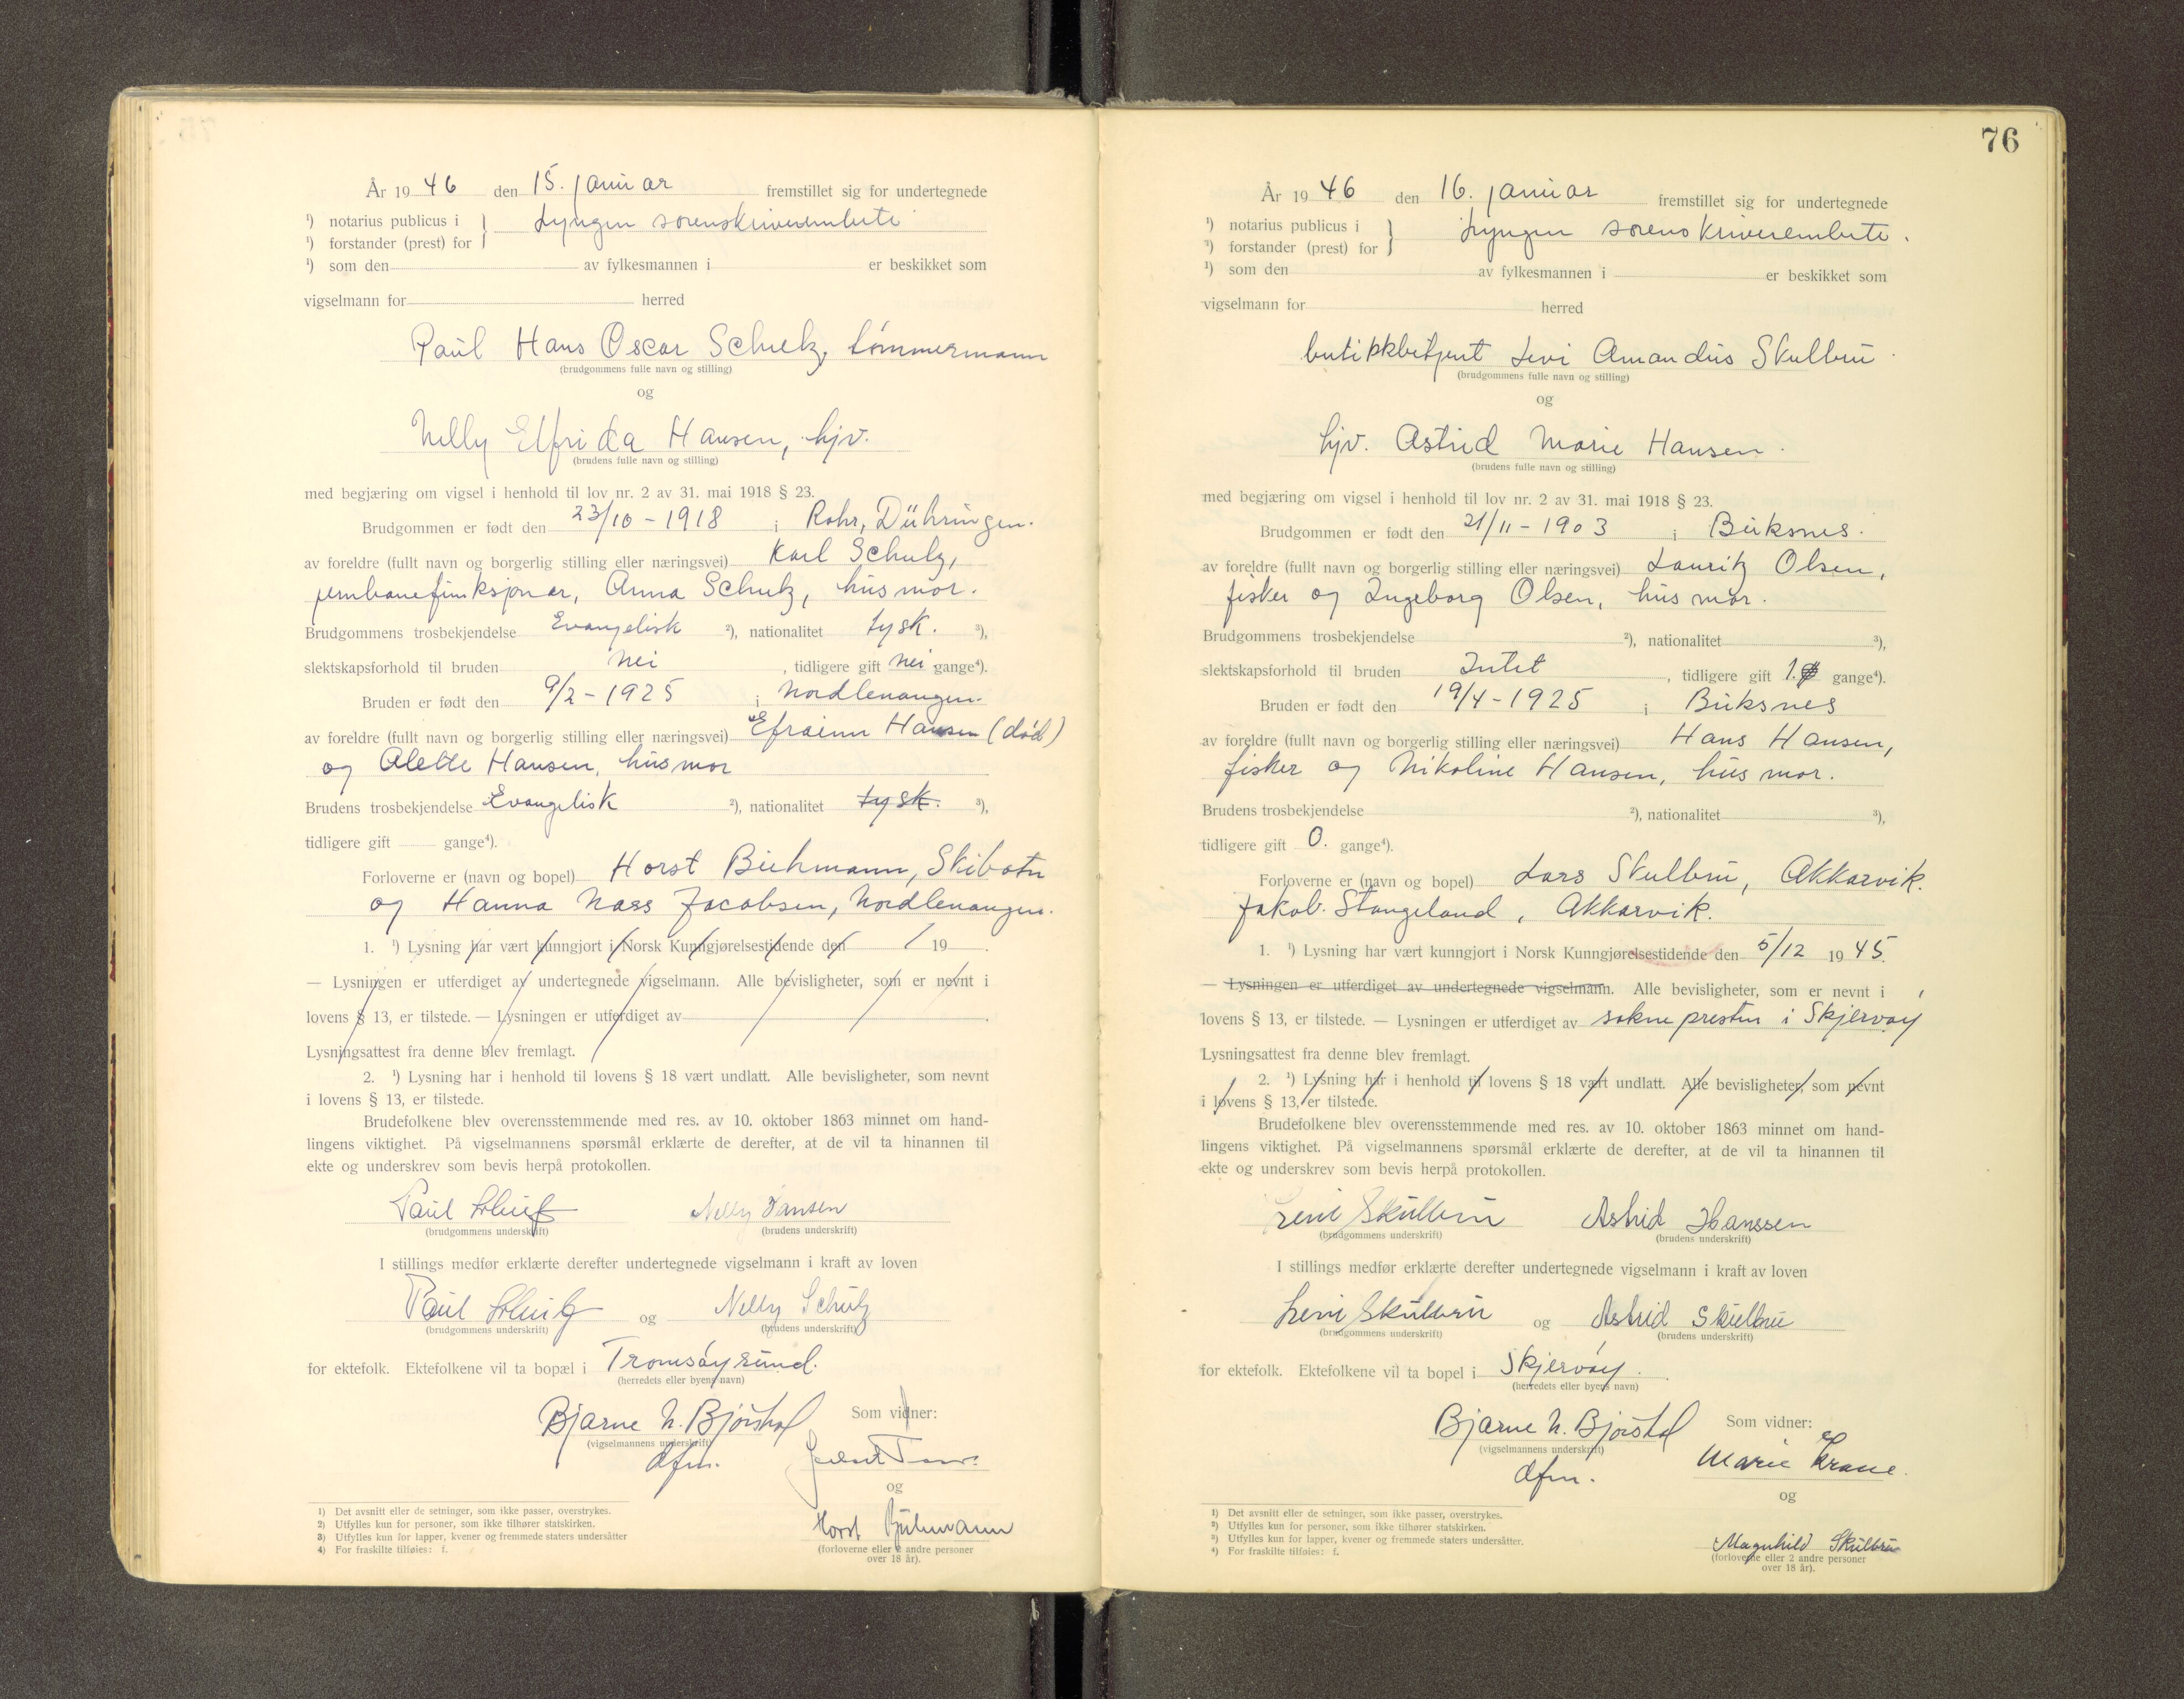 År 19 46 den 15. januar fremstillet sig for undertegnede
¹) notarius publicus i } Lyngen sorenskriverembete
¹) forstander (prest) for
¹) som den av fylkesmannen i er beskikket som
vigselmann for herred
Paul Hans Oscar Schulz, tømmermann
(brudgommens fulle navn og stilling)
og
Nelly Elfrida Hansen, hjv.
(brudens fulle navn og stilling)
med begjæring om vigsel i henhold til lov nr. 2 av 31. mai 1918 § 23.
Brudgommen er født den 23/10 - 1918 i Rohr, Dühringen.
av foreldre (fullt navn og borgerlig stilling eller næringsvei) Karl Schulz,
jernbanefunksjonær, Anna Schulz, husmor.
Brudgommens trosbekjendelse Evangelisk ²), nationalitet tysk. ³),
slektskapsforhold til bruden nei, tidligere gift nei gange⁴).
Bruden er født den 9/2 - 1925 i Nordlenangen.
av foreldre (fullt navn og borgerlig stilling eller næringsvei) Efraim Hansen (død)
og Alette Hansen, husmor
Brudens trosbekjendelse Evangelisk ²), nationalitet tysk. ³),
tidligere gift gange⁴).
Forloverne er (navn og bopel) Horst Buhmann, Skibotn
og Hanna Nass Jacobsen, Nordlenangen.
1. ¹) Lysning har vært kunngjort i Norsk Kunngjørelsestidende den / 19 .
— Lysningen er utferdiget av undertegnede vigselmann. Alle bevisligheter, som er nevnt i
lovens § 13, er tilstede. — Lysningen er utferdiget av .
Lysningsattest fra denne blev fremlagt.
2. ¹) Lysning har i henhold til lovens § 18 vært undlatt. Alle bevisligheter, som nevnt
i lovens § 13, er tilstede.
Brudefolkene blev overensstemmende med res. av 10. oktober 1863 minnet om hand-
lingens viktighet. På vigselmannens spørsmål erklærte de derefter, at de vil ta hinannen til
ekte og underskrev som bevis herpå protokollen.
Paul Schulz Nelly Hansen
(brudgommens underskrift) (brudens underskrift)
I stillings medfør erklærte derefter undertegnede vigselmann i kraft av loven
Paul Schulz og Nelly Schulz
(brudgommens underskrift) (brudens underskrift)
for ektefolk. Ektefolkene vil ta bopæl i Tromsøysund.
(herredets eller byens navn)
Bjarne N. Bjørstad Som vidner:
(vigselmannens underskrift)
dfm.
og
Horst Buhmann
(forloverne eller 2 andre personer
over 18 år).
1) Det avsnitt eller de setninger, som ikke passer, overstrykes.
2) Utfylles kun for personer, som ikke tilhører statskirken.
3) Utfylles kun for lapper, kvener og fremmede staters undersåtter
4) For fraskilte tilføies: f.
76
År 19 46 den 16. januar fremstillet sig for undertegnede
¹) notarius publicus i } Lyngen sorenskriverembete.
¹) forstander (prest) for
¹) som den av fylkesmannen i er beskikket som
vigselmann for herred
butikkbetjent Levi Amandus Skulbru
(brudgommens fulle navn og stilling)
og
hjv. Astrid Marie Hansen.
(brudens fulle navn og stilling)
med begjæring om vigsel i henhold til lov nr. 2 av 31. mai 1918 § 23.
Brudgommen er født den 21/11 - 1903 i Buksnes.
av foreldre (fullt navn og borgerlig stilling eller næringsvei) Lauritz Olsen,
fisker og Ingeborg Olsen, husmor.
Brudgommens trosbekjendelse ²), nationalitet ³),
slektskapsforhold til bruden Intet, tidligere gift 1. gange⁴).
Bruden er født den 19/4 - 1925 i Buksnes
av foreldre (fullt navn og borgerlig stilling eller næringsvei) Hans Hansen,
fisker og Nikoline Hansen, husmor.
Brudens trosbekjendelse ²), nationalitet ³),
tidligere gift 0. gange⁴).
Forloverne er (navn og bopel) Lars Skulbru, Akkarvik.
Jakob Stangeland, Akkarvik.
1. ¹) Lysning har vært kunngjort i Norsk Kunngjørelsestidende den 5/12 19 45.
— Lysningen er utferdiget av undertegnede vigselmann. Alle bevisligheter, som er nevnt i
lovens § 13, er tilstede. — Lysningen er utferdiget av soknepresten i Skjervøy
Lysningsattest fra denne blev fremlagt.
2. ¹) Lysning har i henhold til lovens § 18 vært undlatt. Alle bevisligheter, som nevnt
i lovens § 13, er tilstede.
Brudefolkene blev overensstemmende med res. av 10. oktober 1863 minnet om hand-
lingens viktighet. På vigselmannens spørsmål erklærte de derefter, at de vil ta hinannen til
ekte og underskrev som bevis herpå protokollen.
Levi Skulbru Astrid Hanssen
(brudgommens underskrift) (brudens underskrift)
I stillings medfør erklærte derefter undertegnede vigselmann i kraft av loven
Levi Skulbru og Astrid Skulbru
(brudgommens underskrift) (brudens underskrift)
for ektefolk. Ektefolkene vil ta bopel i Skjervøy.
(herredets eller byens navn)
Bjarne N. Bjørstad Som vidner:
(vigselmannens underskrift)
dfm. Marie Krane.
og
Magnhild Skulbru
(forloverne eller 2 andre personer
over 18 år).
1) Det avsnitt eller de setninger, som ikke passer, overstrykes.
2) Utfylles kun for personer, som ikke tilhører statskirken.
3) Utfylles kun for lapper, kvener og fremmede staters undersåtter.
4) For fraskilte tilføies: f.